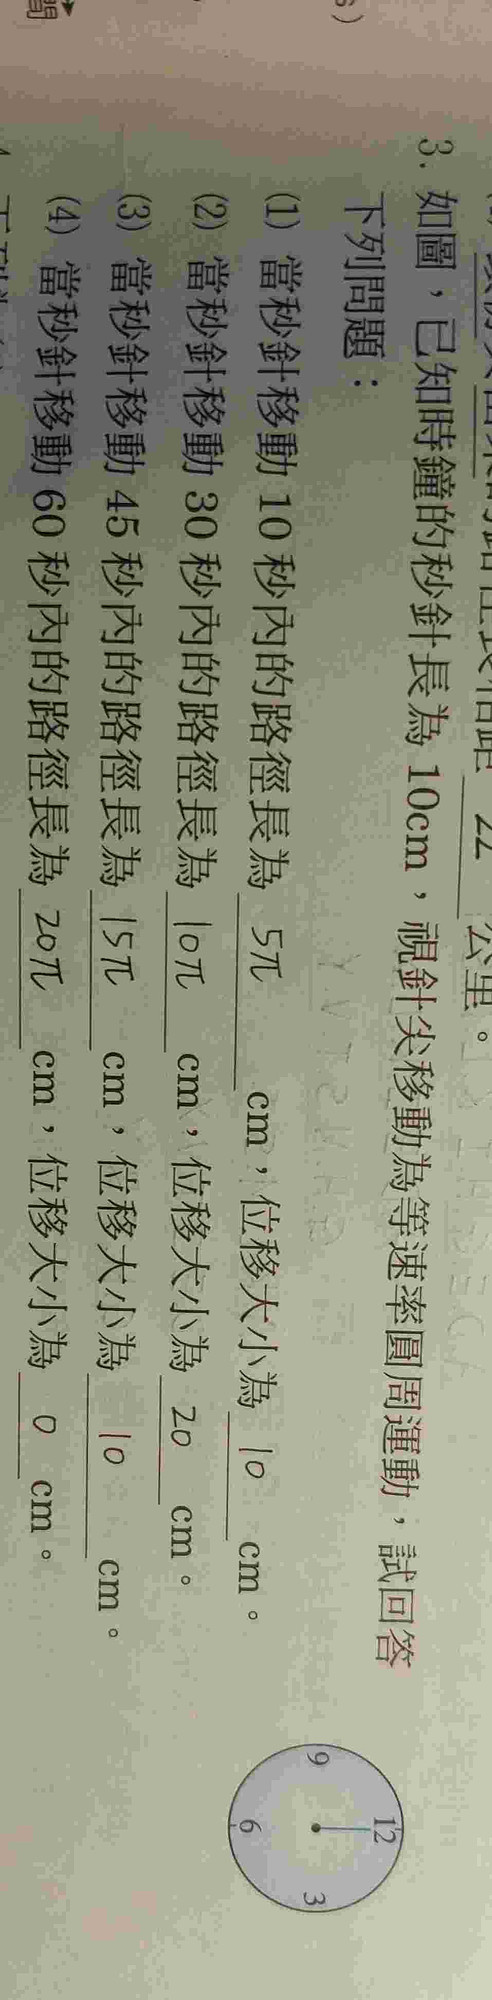 22 公里。
3. 如圖，已知時鐘的秒針長為 10cm，視針尖移動為等速率圓周運動，試回答
下列問題：
(1) 當秒針移動 10 秒內的路徑長為 5π cm，位移大小為 10 cm。
(2) 當秒針移動 30 秒內的路徑長為 10π cm，位移大小為 20 cm。
(3) 當秒針移動 45 秒內的路徑長為 15π cm，位移大小為 10 cm。
(4) 當秒針移動 60 秒內的路徑長為 20π cm，位移大小為 0 cm。
12
9
3
6